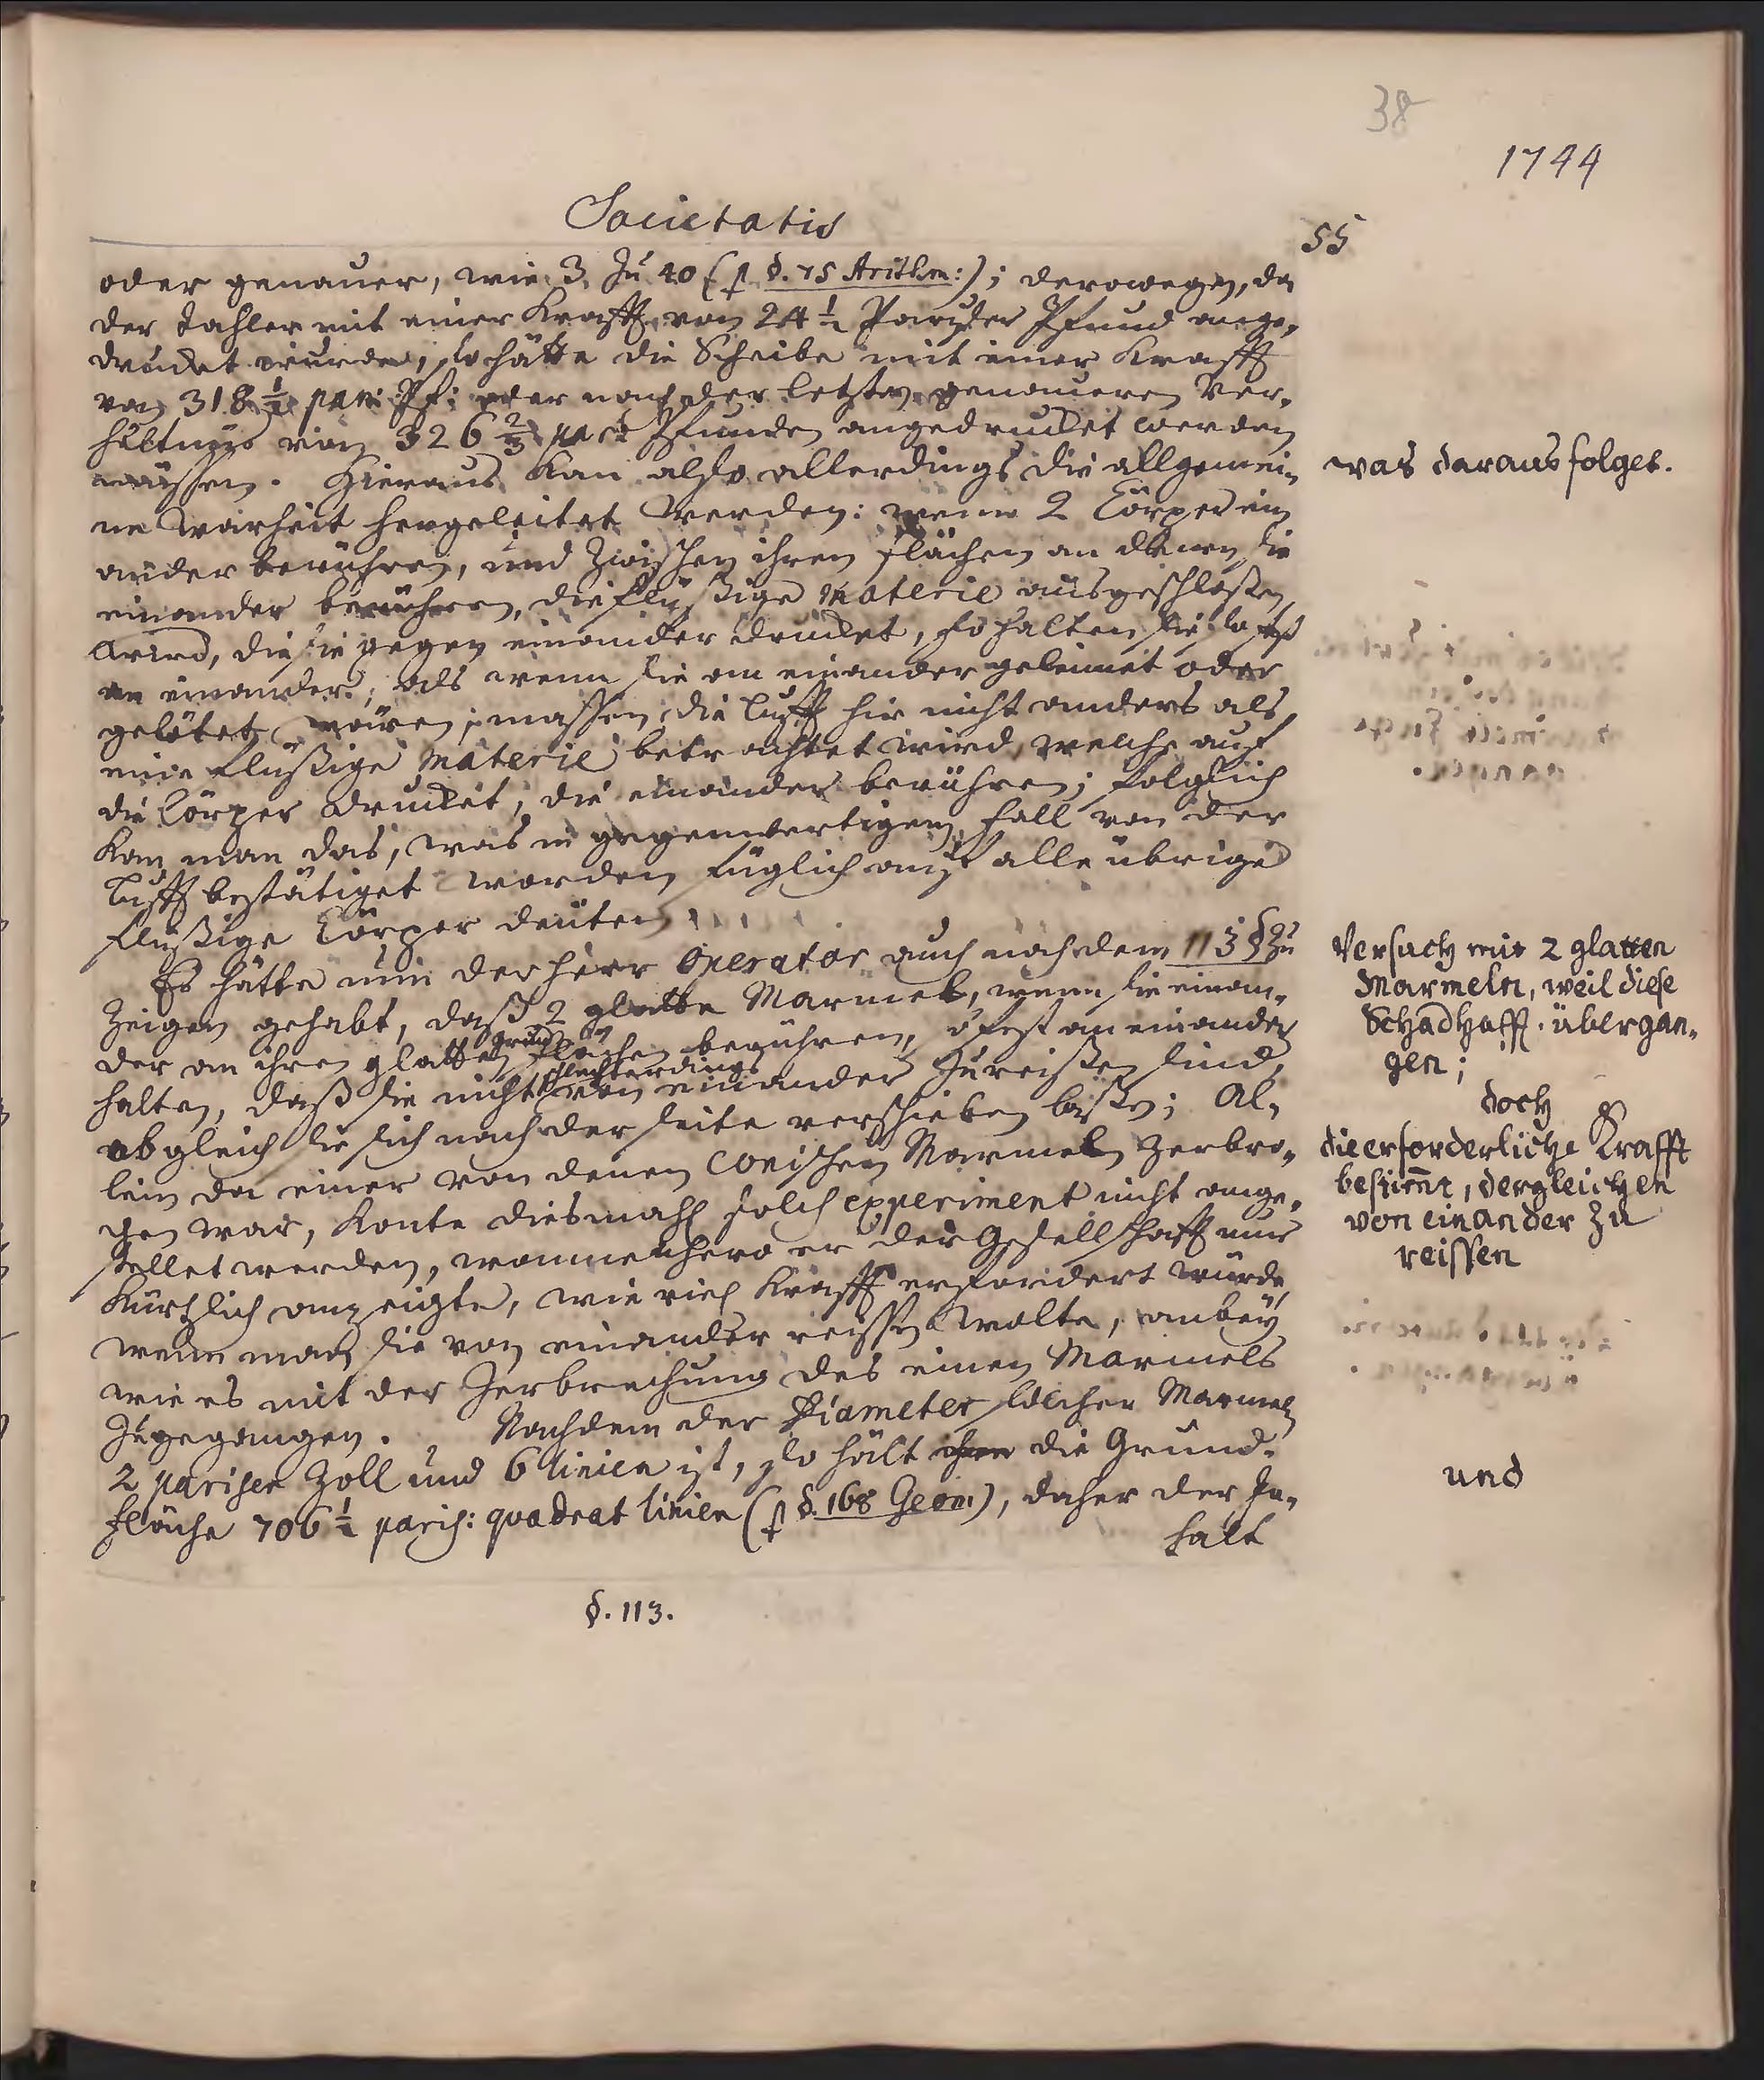 38
1744
Societatis
55
oder genauer, wie 3 zu 40 (p §. 75 Arithm:); derowegen, da
der Tahler mit einer Krafft von 24 1/2 Parißer Pfund ange-
drucket wurde, so hätte die Scheibe mit einer Krafft
von 318 1/2 par: Pf: oder nach der letzten genaueren Ver-
hältnüs von 326 2/3 par: Pfunden angedrucket werden
müssen. Hieraus kan also allerdings die allgemei-
ne Warheit hergeleitet werden: wenn 2 Cörper ein
ander berühren, und zwischen ihren flächen an denen sie
einander berühren, die flüßige materie ausgeschloßen
wird, die sie gegen einander drucket, so halten sie so fest
an einander, als wenn sie an einander geleimet oder
gelötet wären; massen die Lufft hir nicht anders als
eine flüßige Materie betrachtet wird, welche auf
die Cörper drucket, die einander berühren; folglich
kan man das, was in gegenwertigem fall von der
Lufft bestätiget worden füglich auf alle übrige
flüßige Cörper deuten.
Es hätte nun der Herr Operator auch nach dem 113 § zu
zeigen gehabt, daß 2 glatte Marmel, wenn sie einan-
der an ihren glatten grund flächen berühren, so fest an einander
halten, daß sie nicht schlechterdings von einander zureißen sind,
obgleich sie sich nach der seite verschieben laßen; Al-
lein da einer von denen Conischen Marmeln zerbro-
chen war, konte diesmahl solch experiment nicht ange-
stellet werden, wannenhero er der Gesellschafft nur
kürtzlich anzeigte, wie viel Krafft erfordert würde,
wenn man sie von einander reissen wolte, anbey
wie es mit der Zerbrechung des einen Marmels
zugegangen. Nachdem der Diameter solcher Marmel
2 pariser Zoll und 6 linien ist, so hält die Grund-
fläche 706 1/2 paris: quadrat linien (p §. 168 Geom), daher der In-
halt
§. 113.
was daraus folget.
Versuch mit 2 glatten
Marmeln, weil diese
Schadhafft übergan-
gen;
doch
die erforderliche Krafft
bestimt, dergleichen
von einander zu
reissen
und